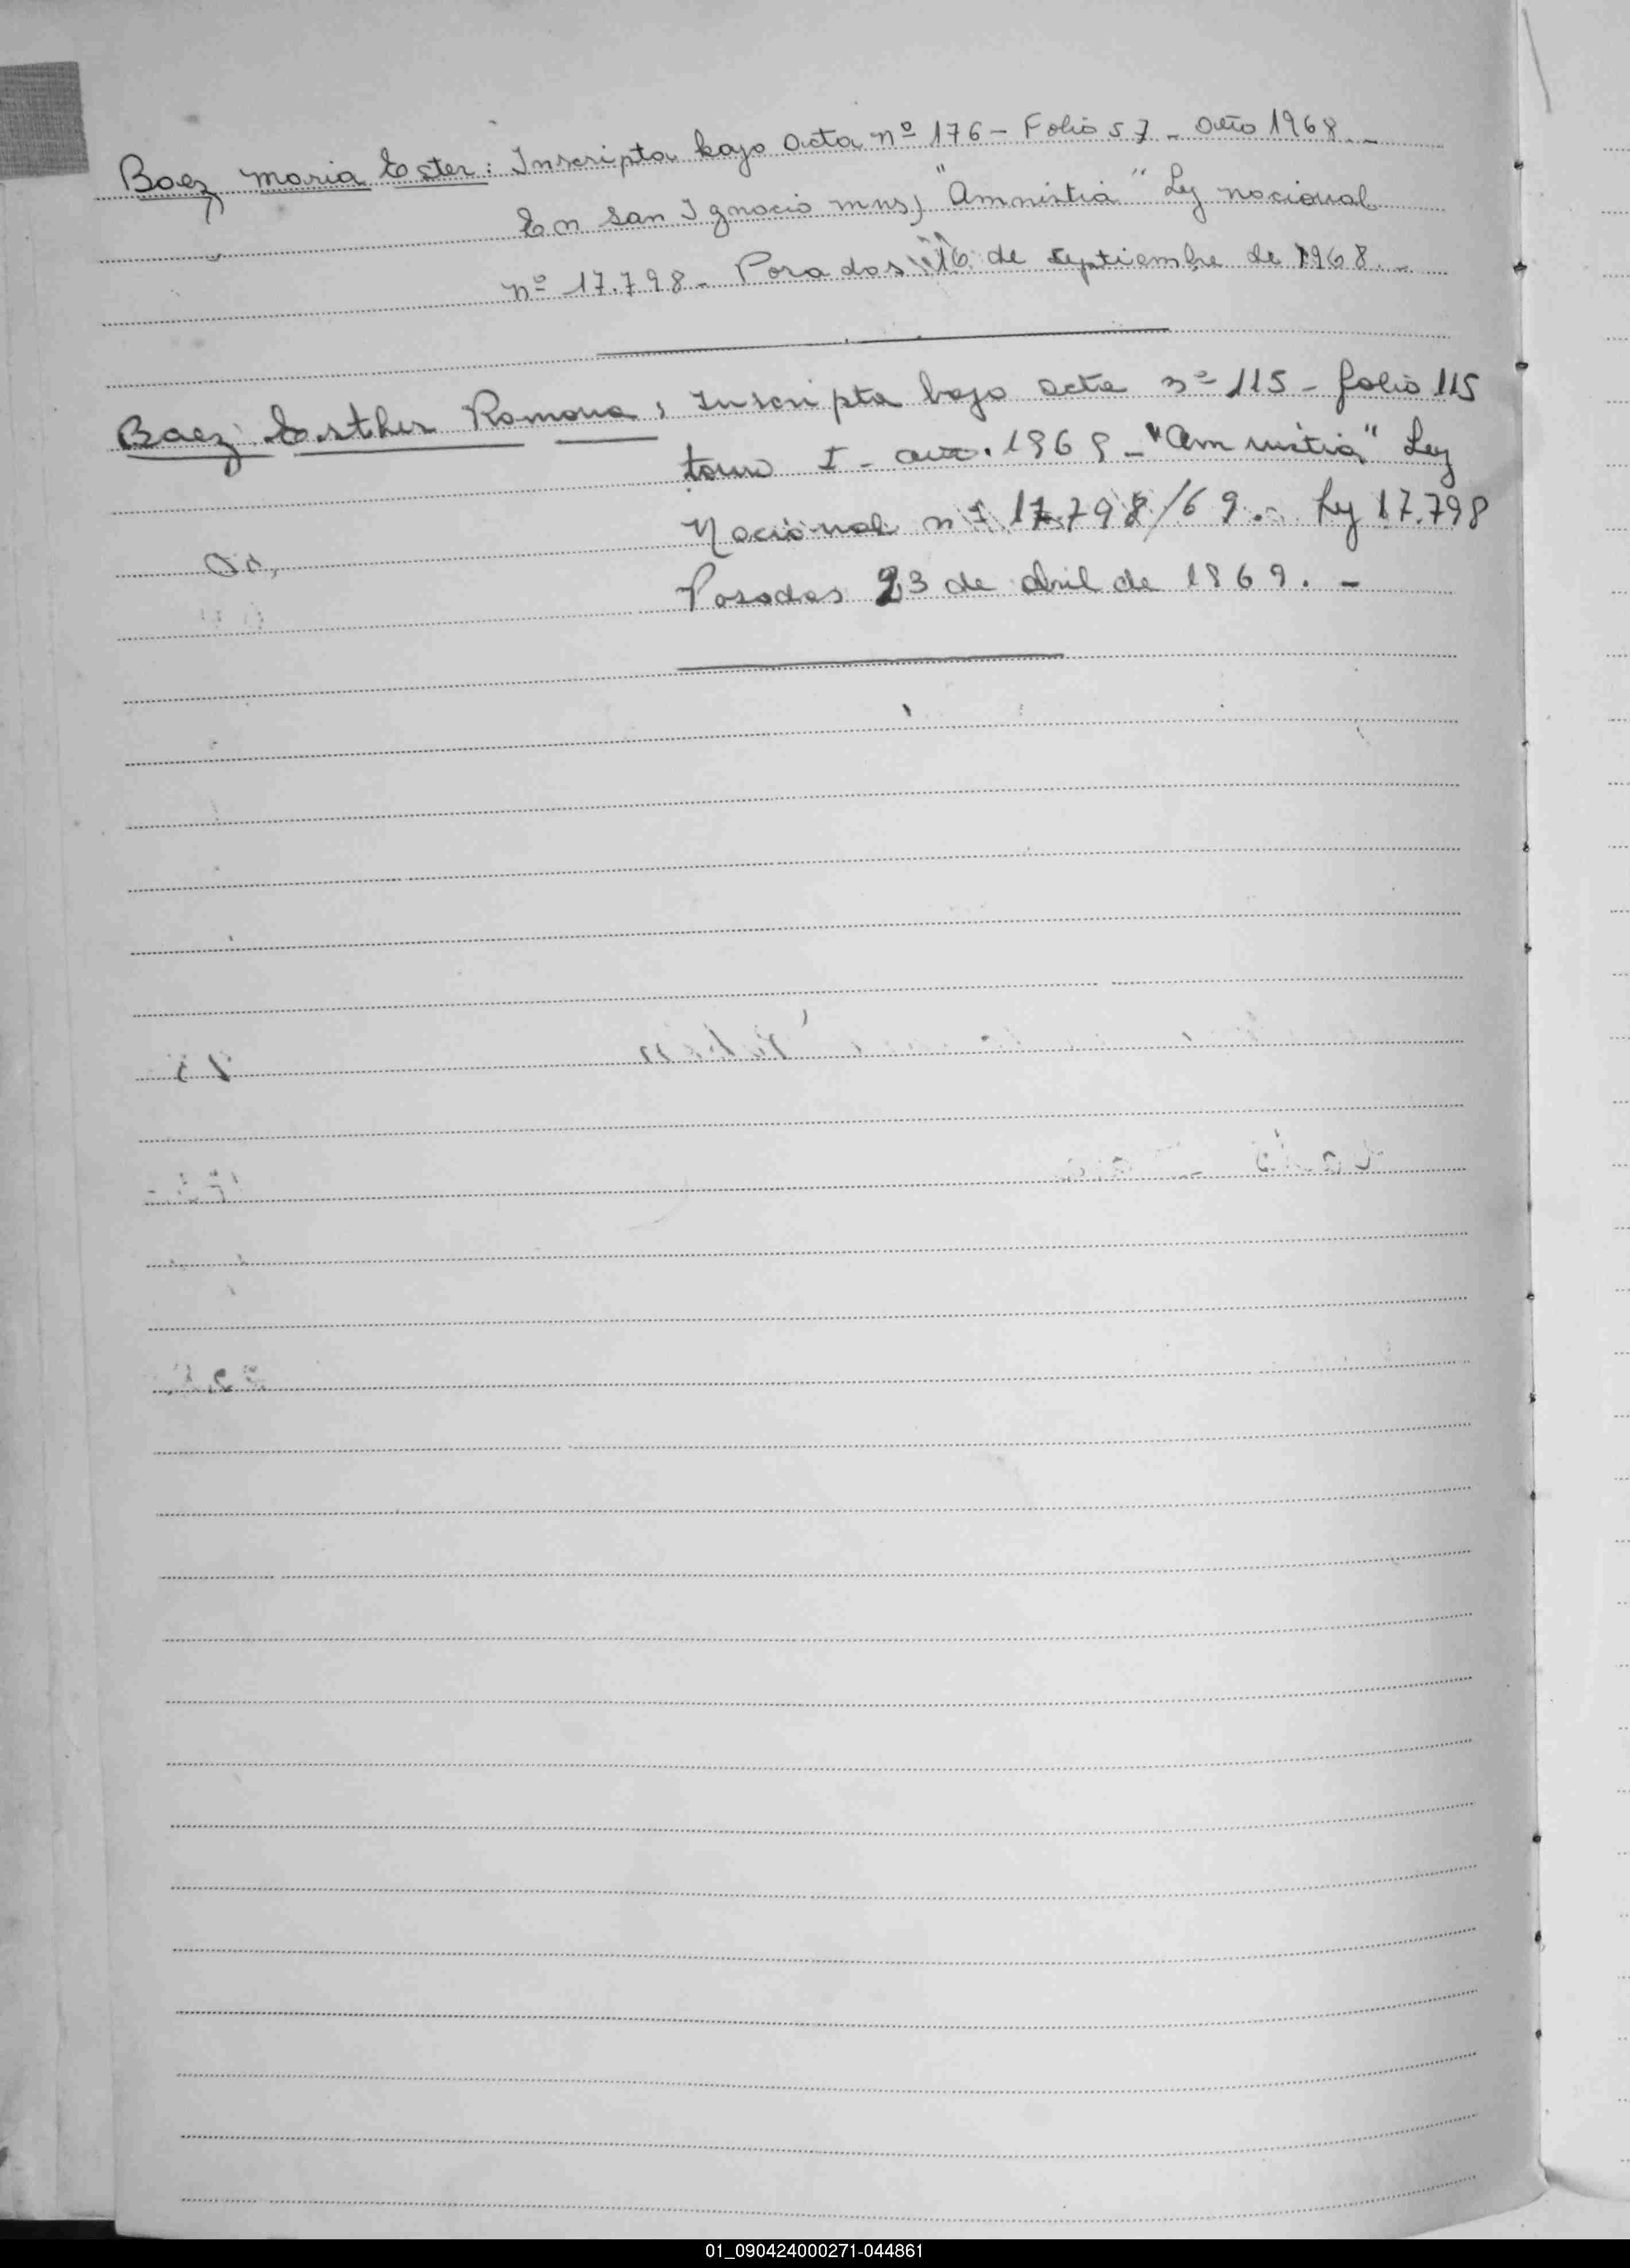 Baez Maria Ester: Inscripta bajo Acta nº 176 - Folio 57 - Año 1968.-
En San Ignacio Mns, "Amnistia" Ley nacional
nº 17.798 - Posadas 16 de Septiembre de 1968.-
Baez Esther Ramona: Inscripta bajo acta nº 115 - folio 115
tomo I - año. 1969 - "Amnistia" Ley
Nacional nº 17.798/69.- Ley 17.798
Posadas 23 de abril de 1969. -
01_090424000271-044861